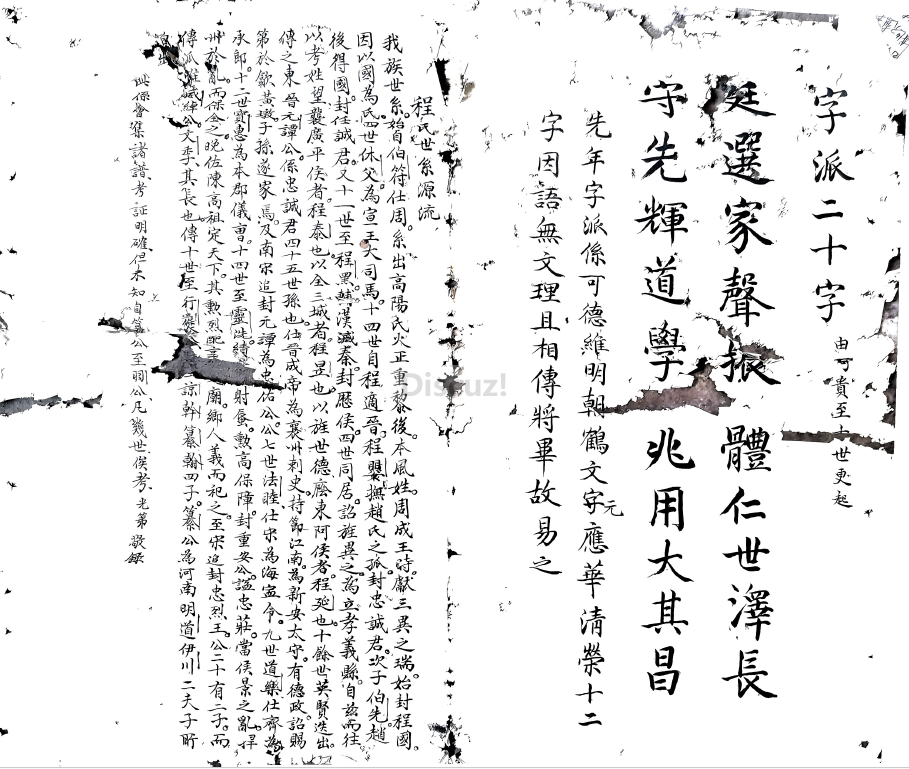 字派二十字 由可貴至十世更起
廷選家聲振體仁世澤長
守先輝道學兆用大其昌
先年字派係可德維明朝鶴文字元應華清榮十二
字因語無文理且相傳將畢故易之
程氏世系源流
我族世系始自伯符仕周系出高陽氏火正重黎後本風姓周成王時獻三異之瑞始封程國
因以國為氏四世休父為宣王大司馬十四世自程適晉程嬰撫趙氏之孤封忠誠君次子伯先趙
後得國封任誠君又十一世至程黑轉漢滅秦封歷侯四世同居詔旌異之為立孝義縣自茲而往
以考姓望襲廣平侯者程泰也以全三城者程昱也以旌世德廕東阿侯者程延也十餘世英賢迭出
傳之東晉元譚公係忠誠君四十五世孫也仕晉成帝為襄州刺史持節江南為新安太守有德政詔賜
第於歙黃墩子孫遂家焉及南宋追封元譚為忠佑公公七世法睦仕宋為海寧令九世道樂仕齊為
承郎十二世寶惠為本郡儀曹十四世至靈洗 射蜃勲高保障封重安公諡忠莊當侯景之亂捍
州於 而保全之晚佐陳高祖定天下其勲烈 廟鄉人義而祀之至宋追封忠烈王公二十有二子而
傳派 公文季其長也傳十世至行 諒幹纂翰四子纂公為河南明道伊川二夫子所
此係會集諸譜考証明確但未知自 公至翮公凡幾世俟考 光第敬錄
Discuz!